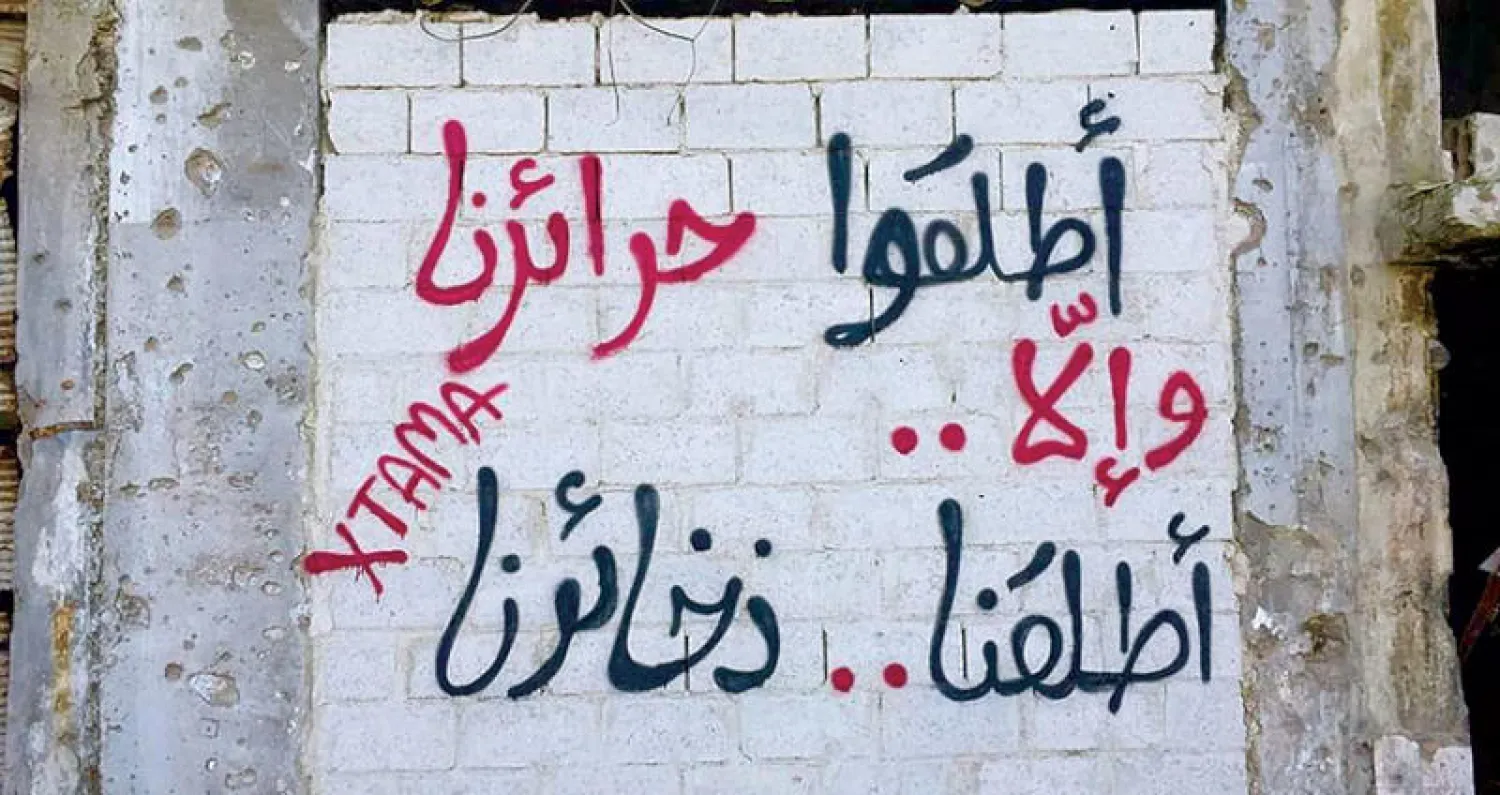 أطلقوا حرائرنا
وإلّا ..
أطلقنا .. ذخائرنا
XTAMA